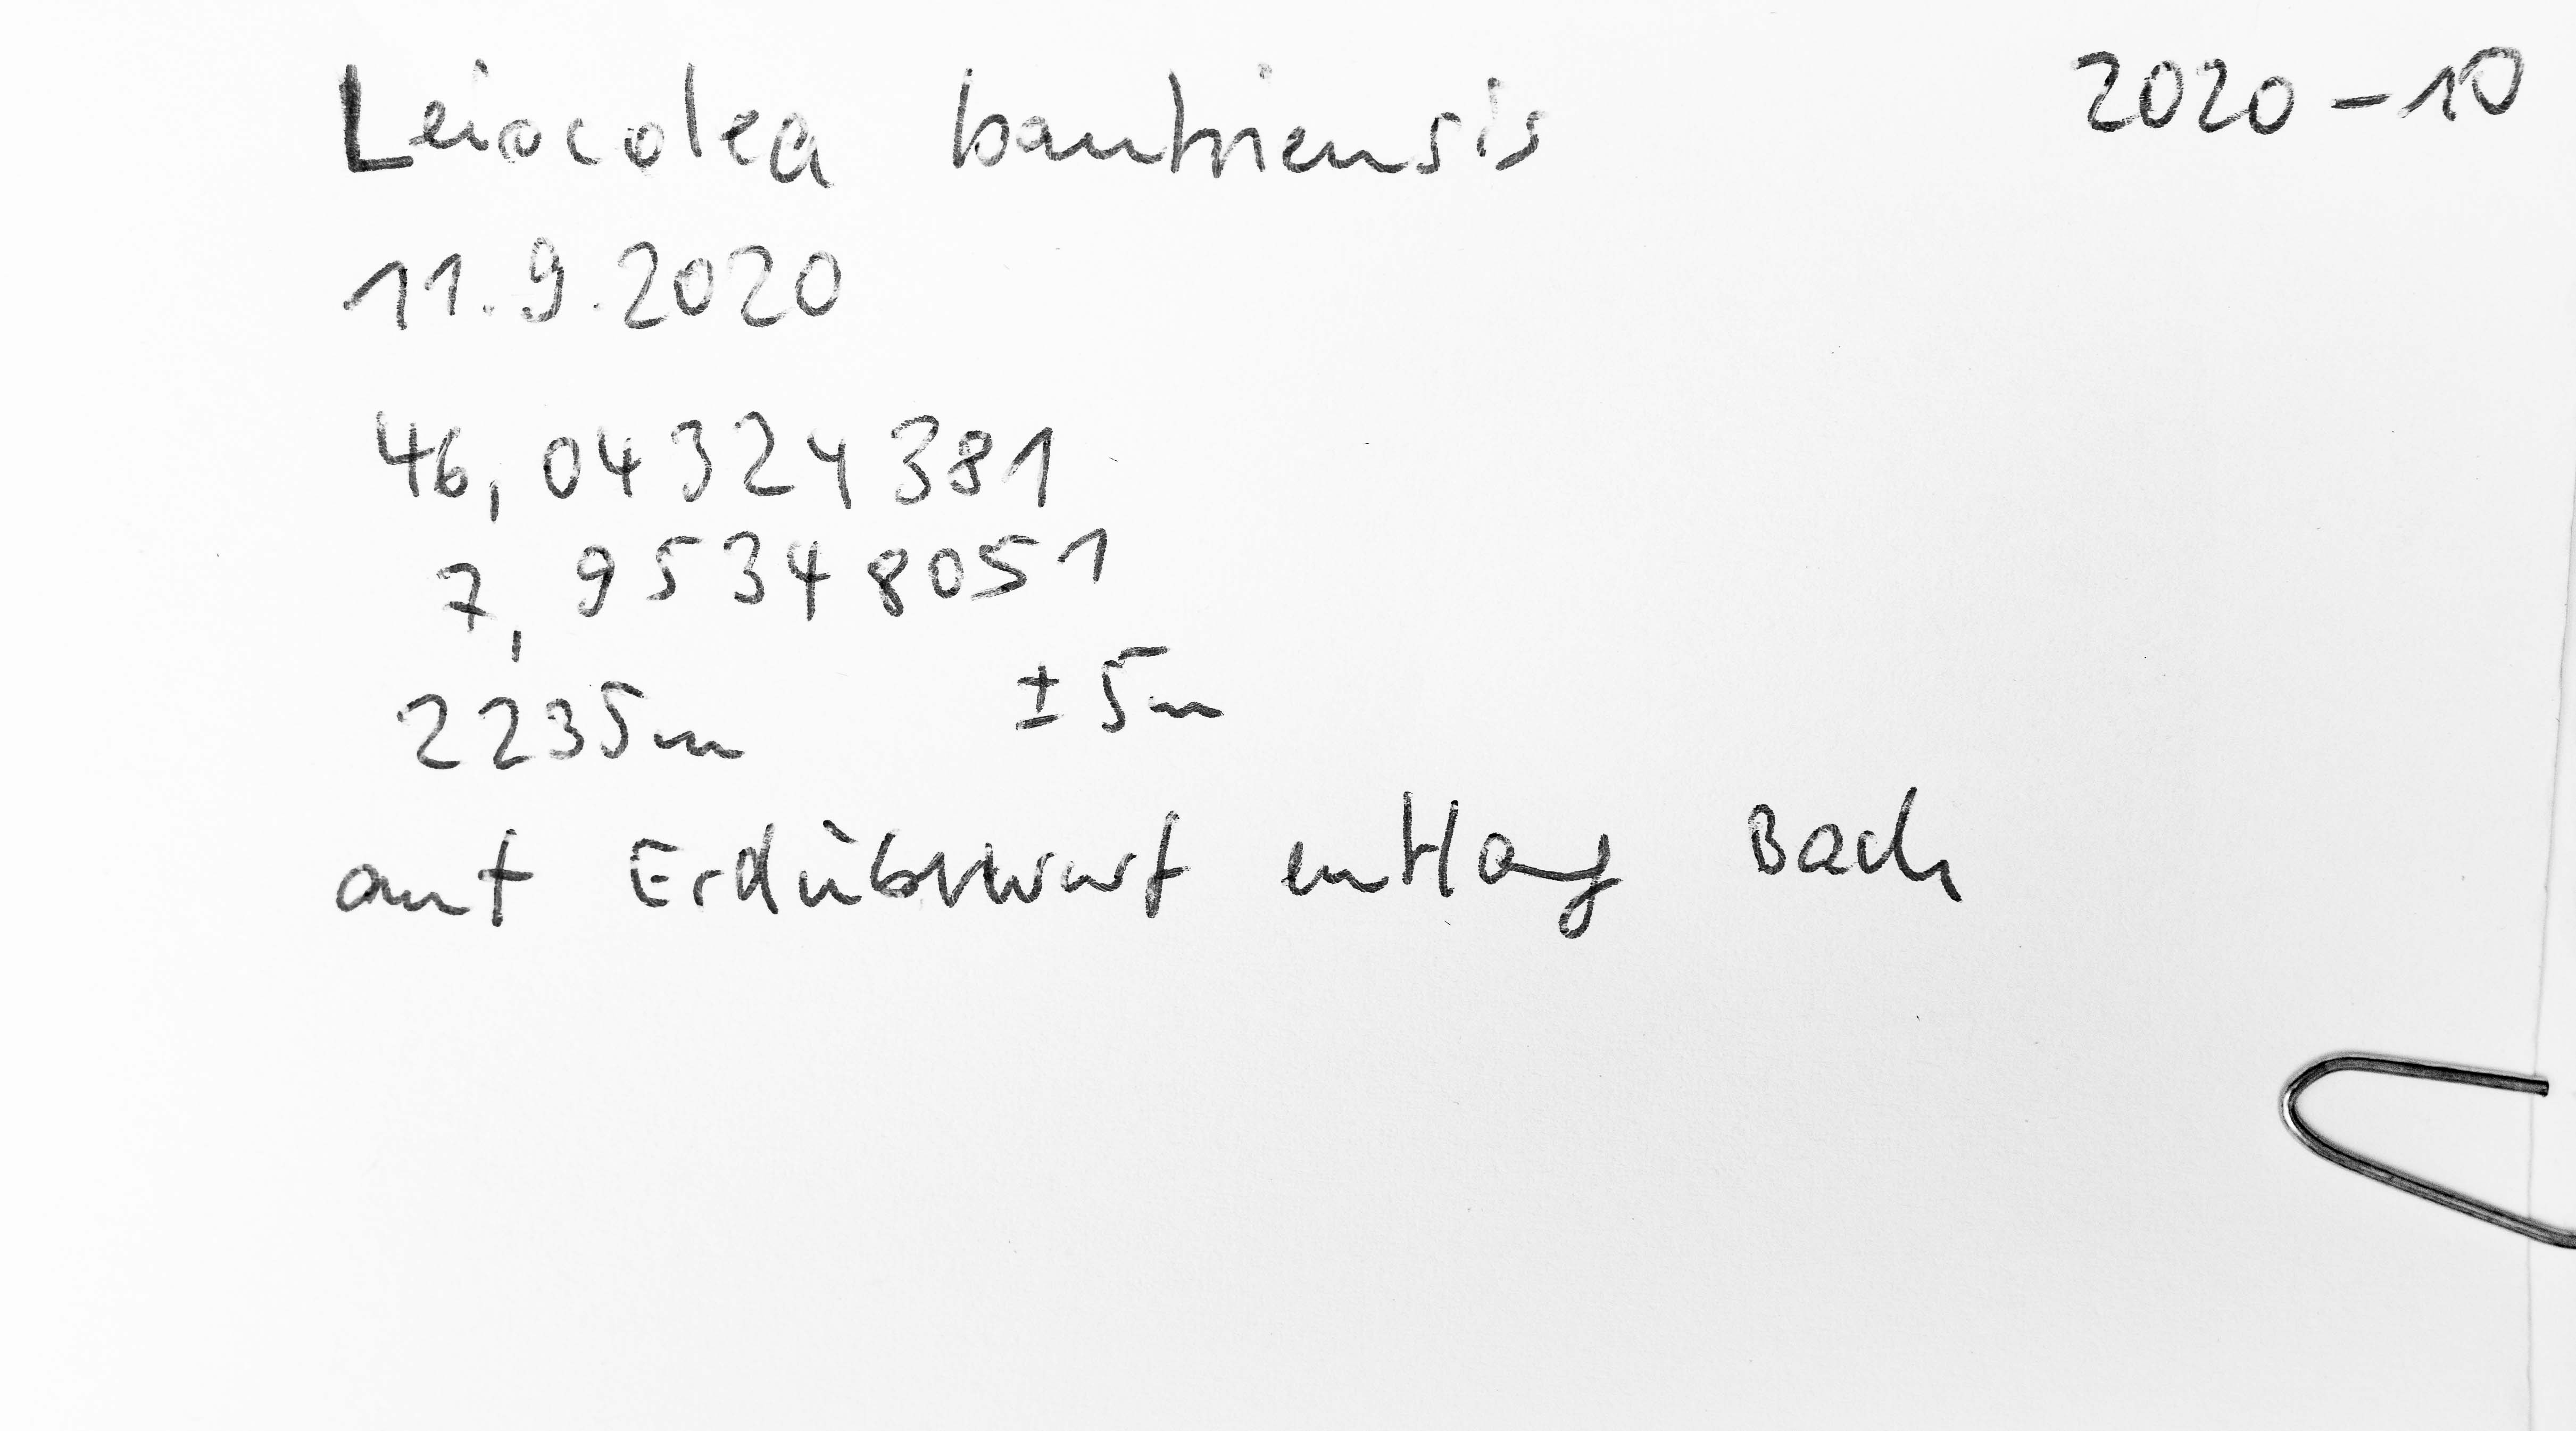 Leiocolea bantriensis 2020-10
11.9.2020
46,04324381
7,95348051
2235m ±5m
auf Erdüberwurf entlang Bach